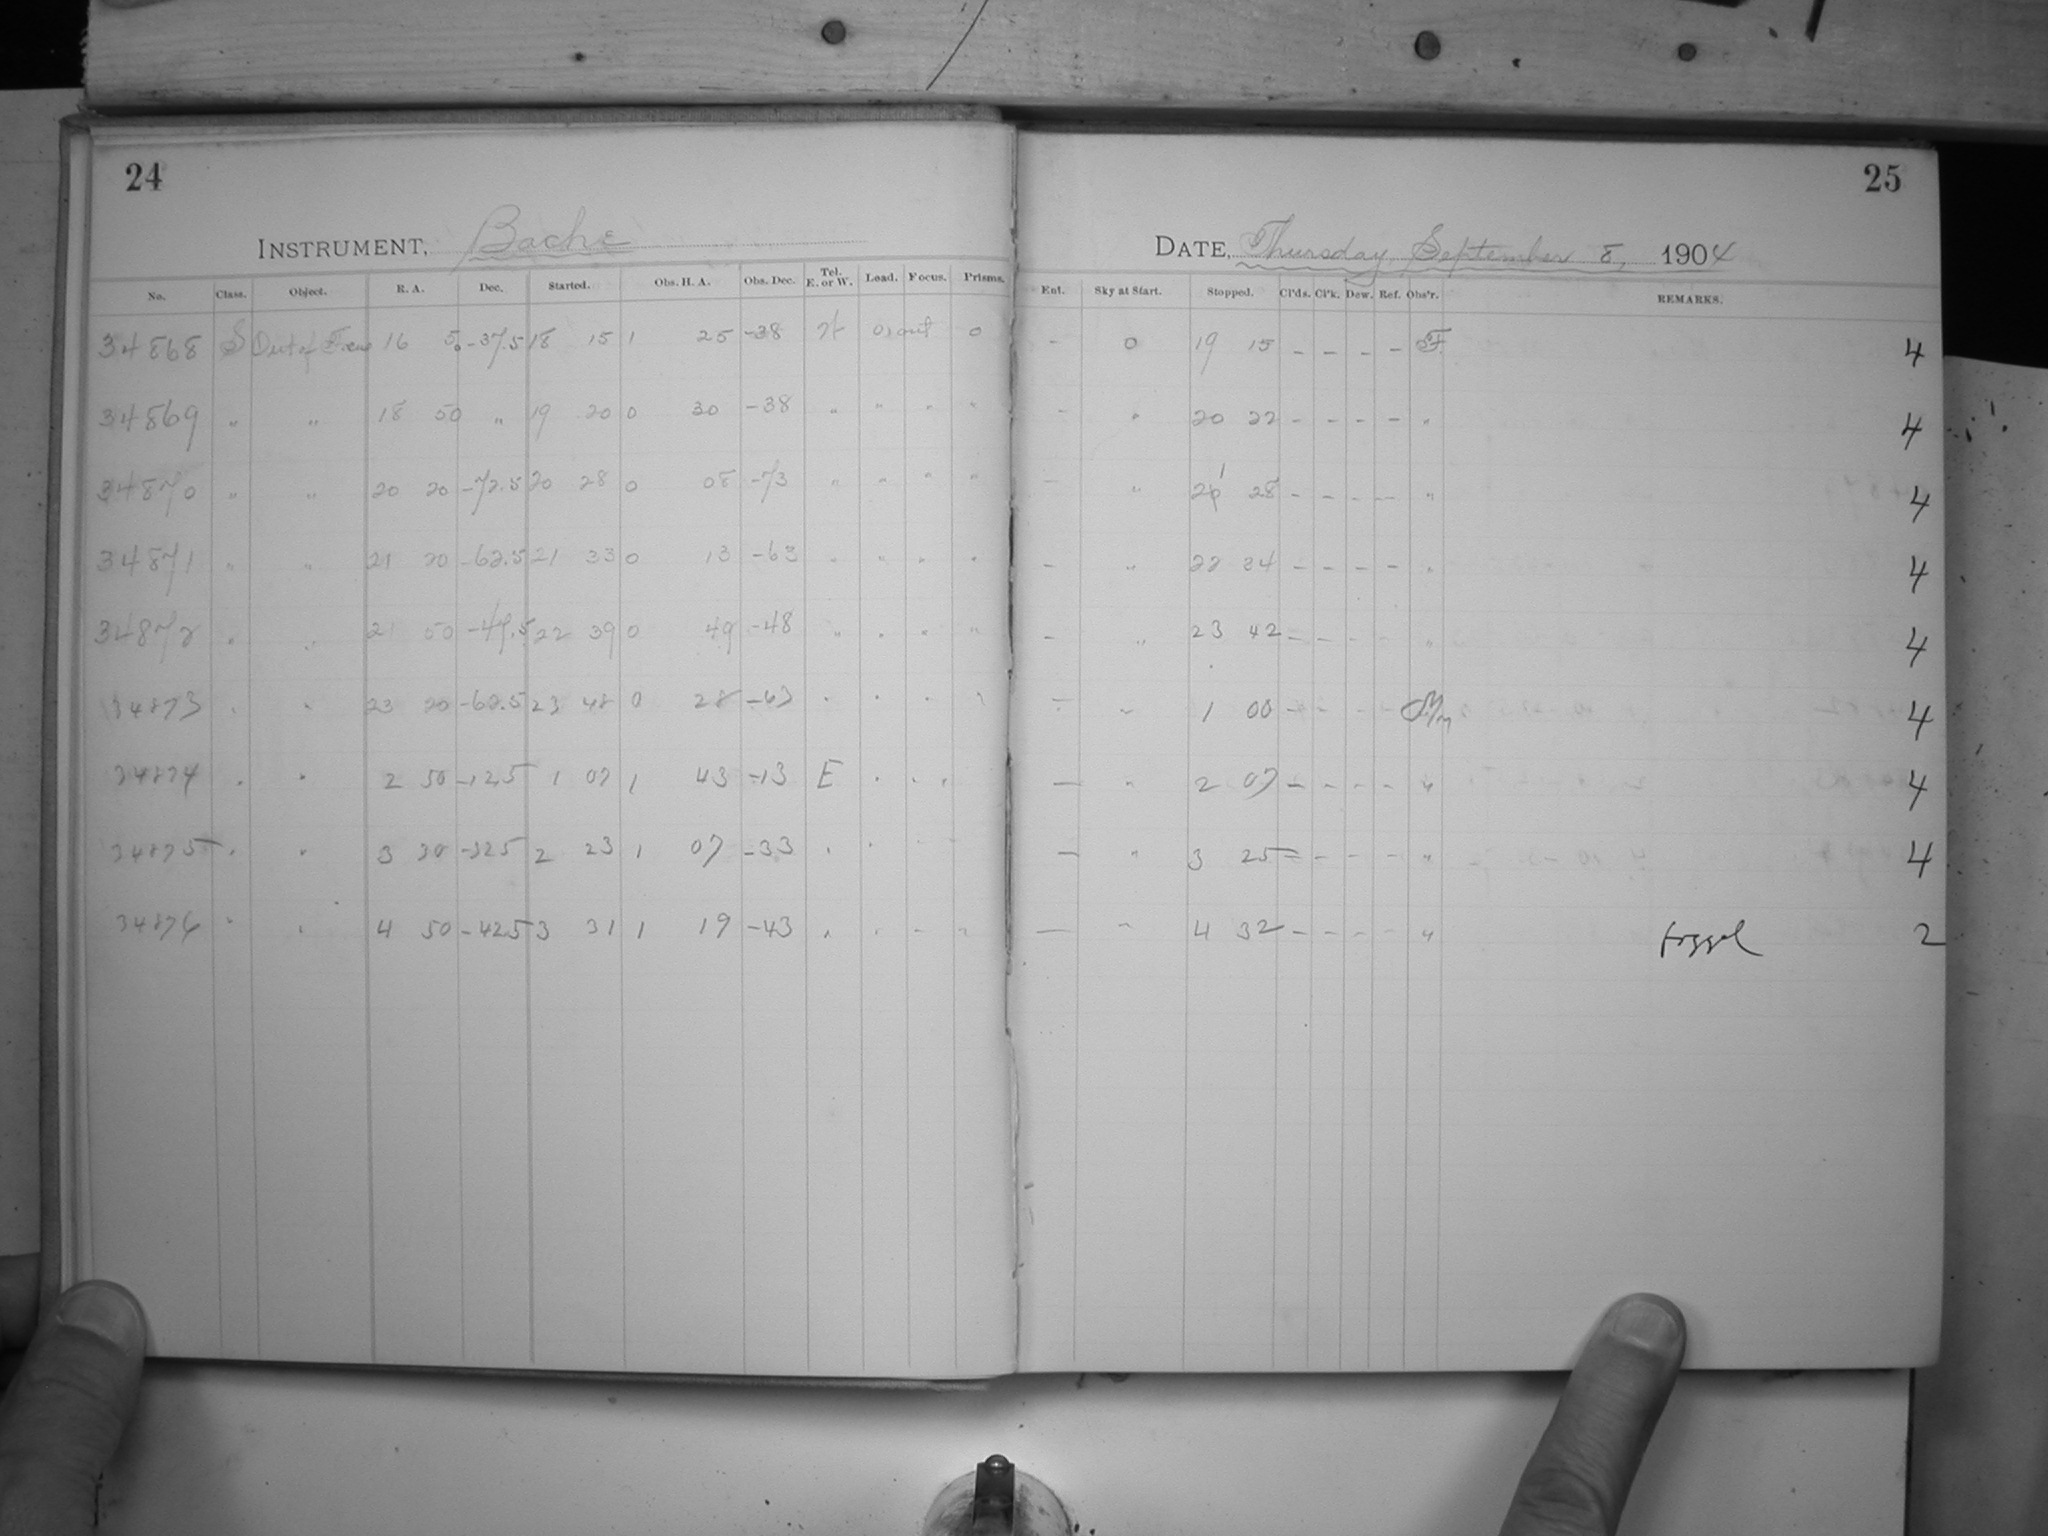 24
25
INSTRUMENT, Bache
DATE, Thursday, September 8, 1904
No. Class. Object. R. A. Dec. Started. Obs. H. A. Obs. Dec. Tel. E. or W. Lead. Focus. Prisms. Ent. Sky at Start. Stopped. Cl'ds. Cl'k. Dew. Ref. Obs'r. REMARKS.
34868 S Out of Focus 16 50 -37.5 18 15 1 25 -38 0 - 0 19 15 - - - - F. 4
34869 " " 18 50 " 19 20 0 30 -38 " " " " - " 20 22 - - - - " 4
34870 " " 20 20 -72.5 20 28 0 08 -73 " " " " - " 21 28 - - - - " 4
34871 " " 21 20 -62.5 21 33 0 13 -63 " " " " - " 22 34 - - - - " 4
34872 " " 21 50 -47.5 22 39 0 49 -48 " " " " - " 23 42 - - - - " 4
34873 " " 23 20 -62.5 23 48 0 28 -63 " " " " - " 1 00 - - - - 4
34874 " " 2 50 -125 1 07 1 43 -13 E " " " - " 2 07 - - - - " 4
34875 " " 3 30 -325 2 23 1 07 -33 " " " " - " 3 25 - - - - " 4
34876 " " 4 50 -425 3 31 1 19 -43 " " " " - " 4 32 - - - - " 2